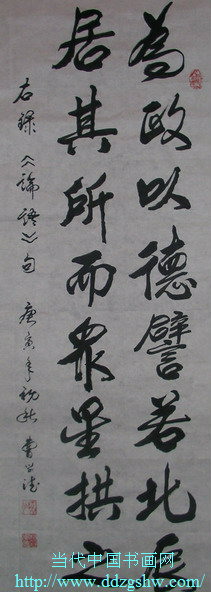 為政以德譬若北辰
居其所而眾星拱之
右録《論語》句 庚寅年初秋 曹
当代中国书画网
http://www.ddzgshw.com/